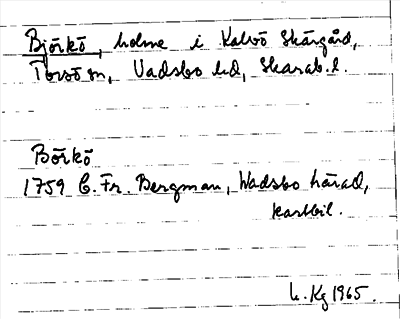 Björkö, holme i Kalvö Skärgård,
Torsö sn, Vadsbo hd, Skarab.l.
Börkö
1759 C. Fr. Bergman, Wadsbo härad,
kartbil.
L. Kg 1965.